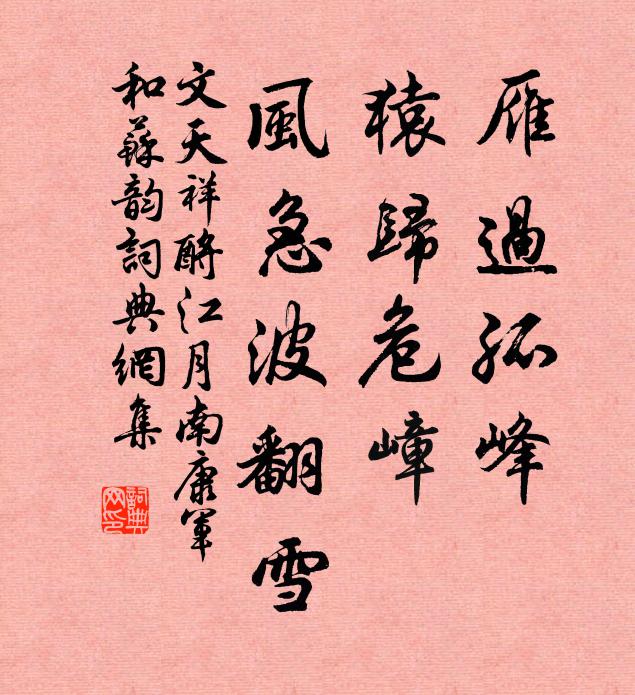 雁過孤峰
猿歸危嶂
風急波翻雪
文天祥酹江月南康軍
和蘇韵詞典網集
詞典
网印